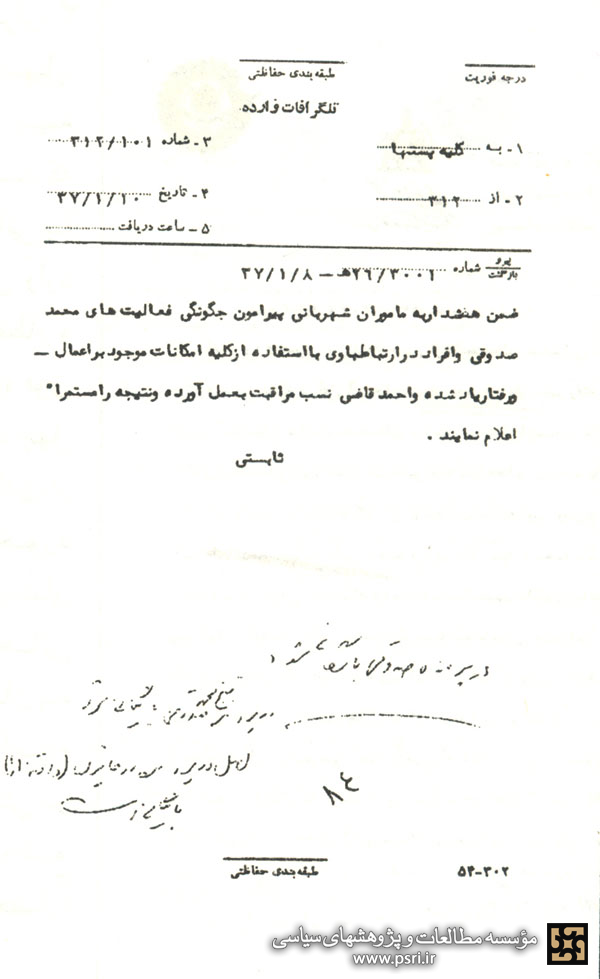 طبقه‌بندی حفاظتی
درجه فوریت
تلگرافات وارده
۱ - به ... کلیه پستها
۳ - شماره ... ۳۱۲/۱۰۱
۲ - از ... ۳۱۲
۴ - تاریخ ... ۳۷/۱/۱۰
۵ - ساعت دریافت ...
پیرو
بازگشت
شماره ... ۲۶/۳۰۰۱ه‍ – ۳۷/۱/۸
ضمن هشدار به ماموران شهربانی پیرامون چگونگی فعالیت های محمد
صدوقی وافراد در ارتباط باوی با استفاده از کلیه امکانات موجود بر اعمال –
ورفتار یاد شده واحمد قاضی نسب مراقبت بعمل آورده ونتیجه را مستمرا"
اعلام نمایند .
ثابتی
در پرونده صدوقی شود
۸۴
طبقه‌بندی حفاظتی
۵۴-۳۰۲
مؤسسه مطالعات و پژوهشهای سیاسی
www.psri.ir